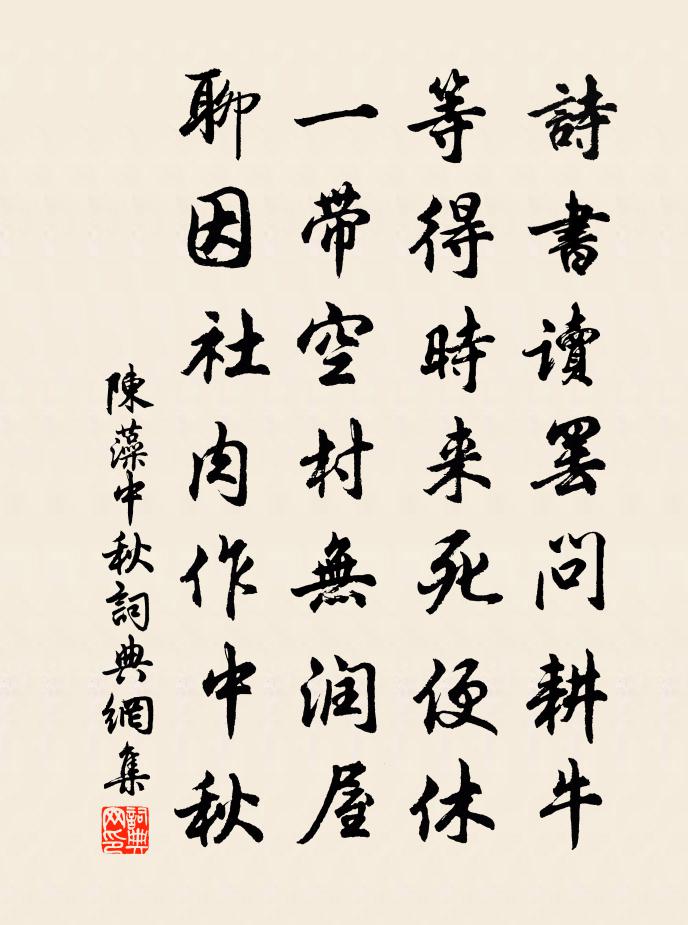 詩書讀罷問耕牛
等得時来死便休
一帶空村無润屋
聊因社肉作中秋
陳藻中秋詞典網集
詞典网印